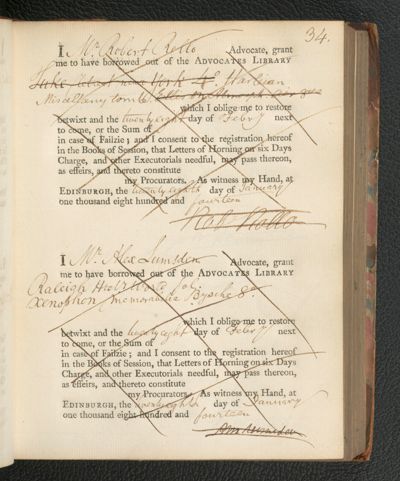 34.
I Mr. Robert Rollo Advocate, grant
me to have borrowed out of the ADVOCATES LIBRARY
York 4o Harleian
Miscellany tom 6.
which I oblige me to restore
betwixt and the twenty eight day of Febry next
to come, or the Sum of
in case of Failzie; and I consent to the registration hereof
in the Books of Session, that Letters of Horning on six Days
Charge, and other Executorials needful, may pass thereon,
as effeirs, and thereto constitute
my Procurators. As witness my Hand, at
EDINBURGH, the twenty eighth day of January
one thousand eight hundred and fourteen
Rob Rollo
I Mr. Alex Lumsden Advocate, grant
me to have borrowed out of the ADVOCATES LIBRARY
Raleigh Hist. World fol.
Xenophon memorabilia Bysche 8o
which I oblige me to restore
betwixt and the twenty eight day of Febry next
to come, or the Sum of
in case of Failzie; and I consent to the registration hereof
in the Books of Session, that Letters of Horning on six Days
Charge, and other Executorials needful, may pass thereon,
as effeirs, and thereto constitute
my Procurators. As witness my Hand, at
EDINBURGH, the twenty eighth day of January
one thousand eight hundred and fourteen
Alex Lumsden